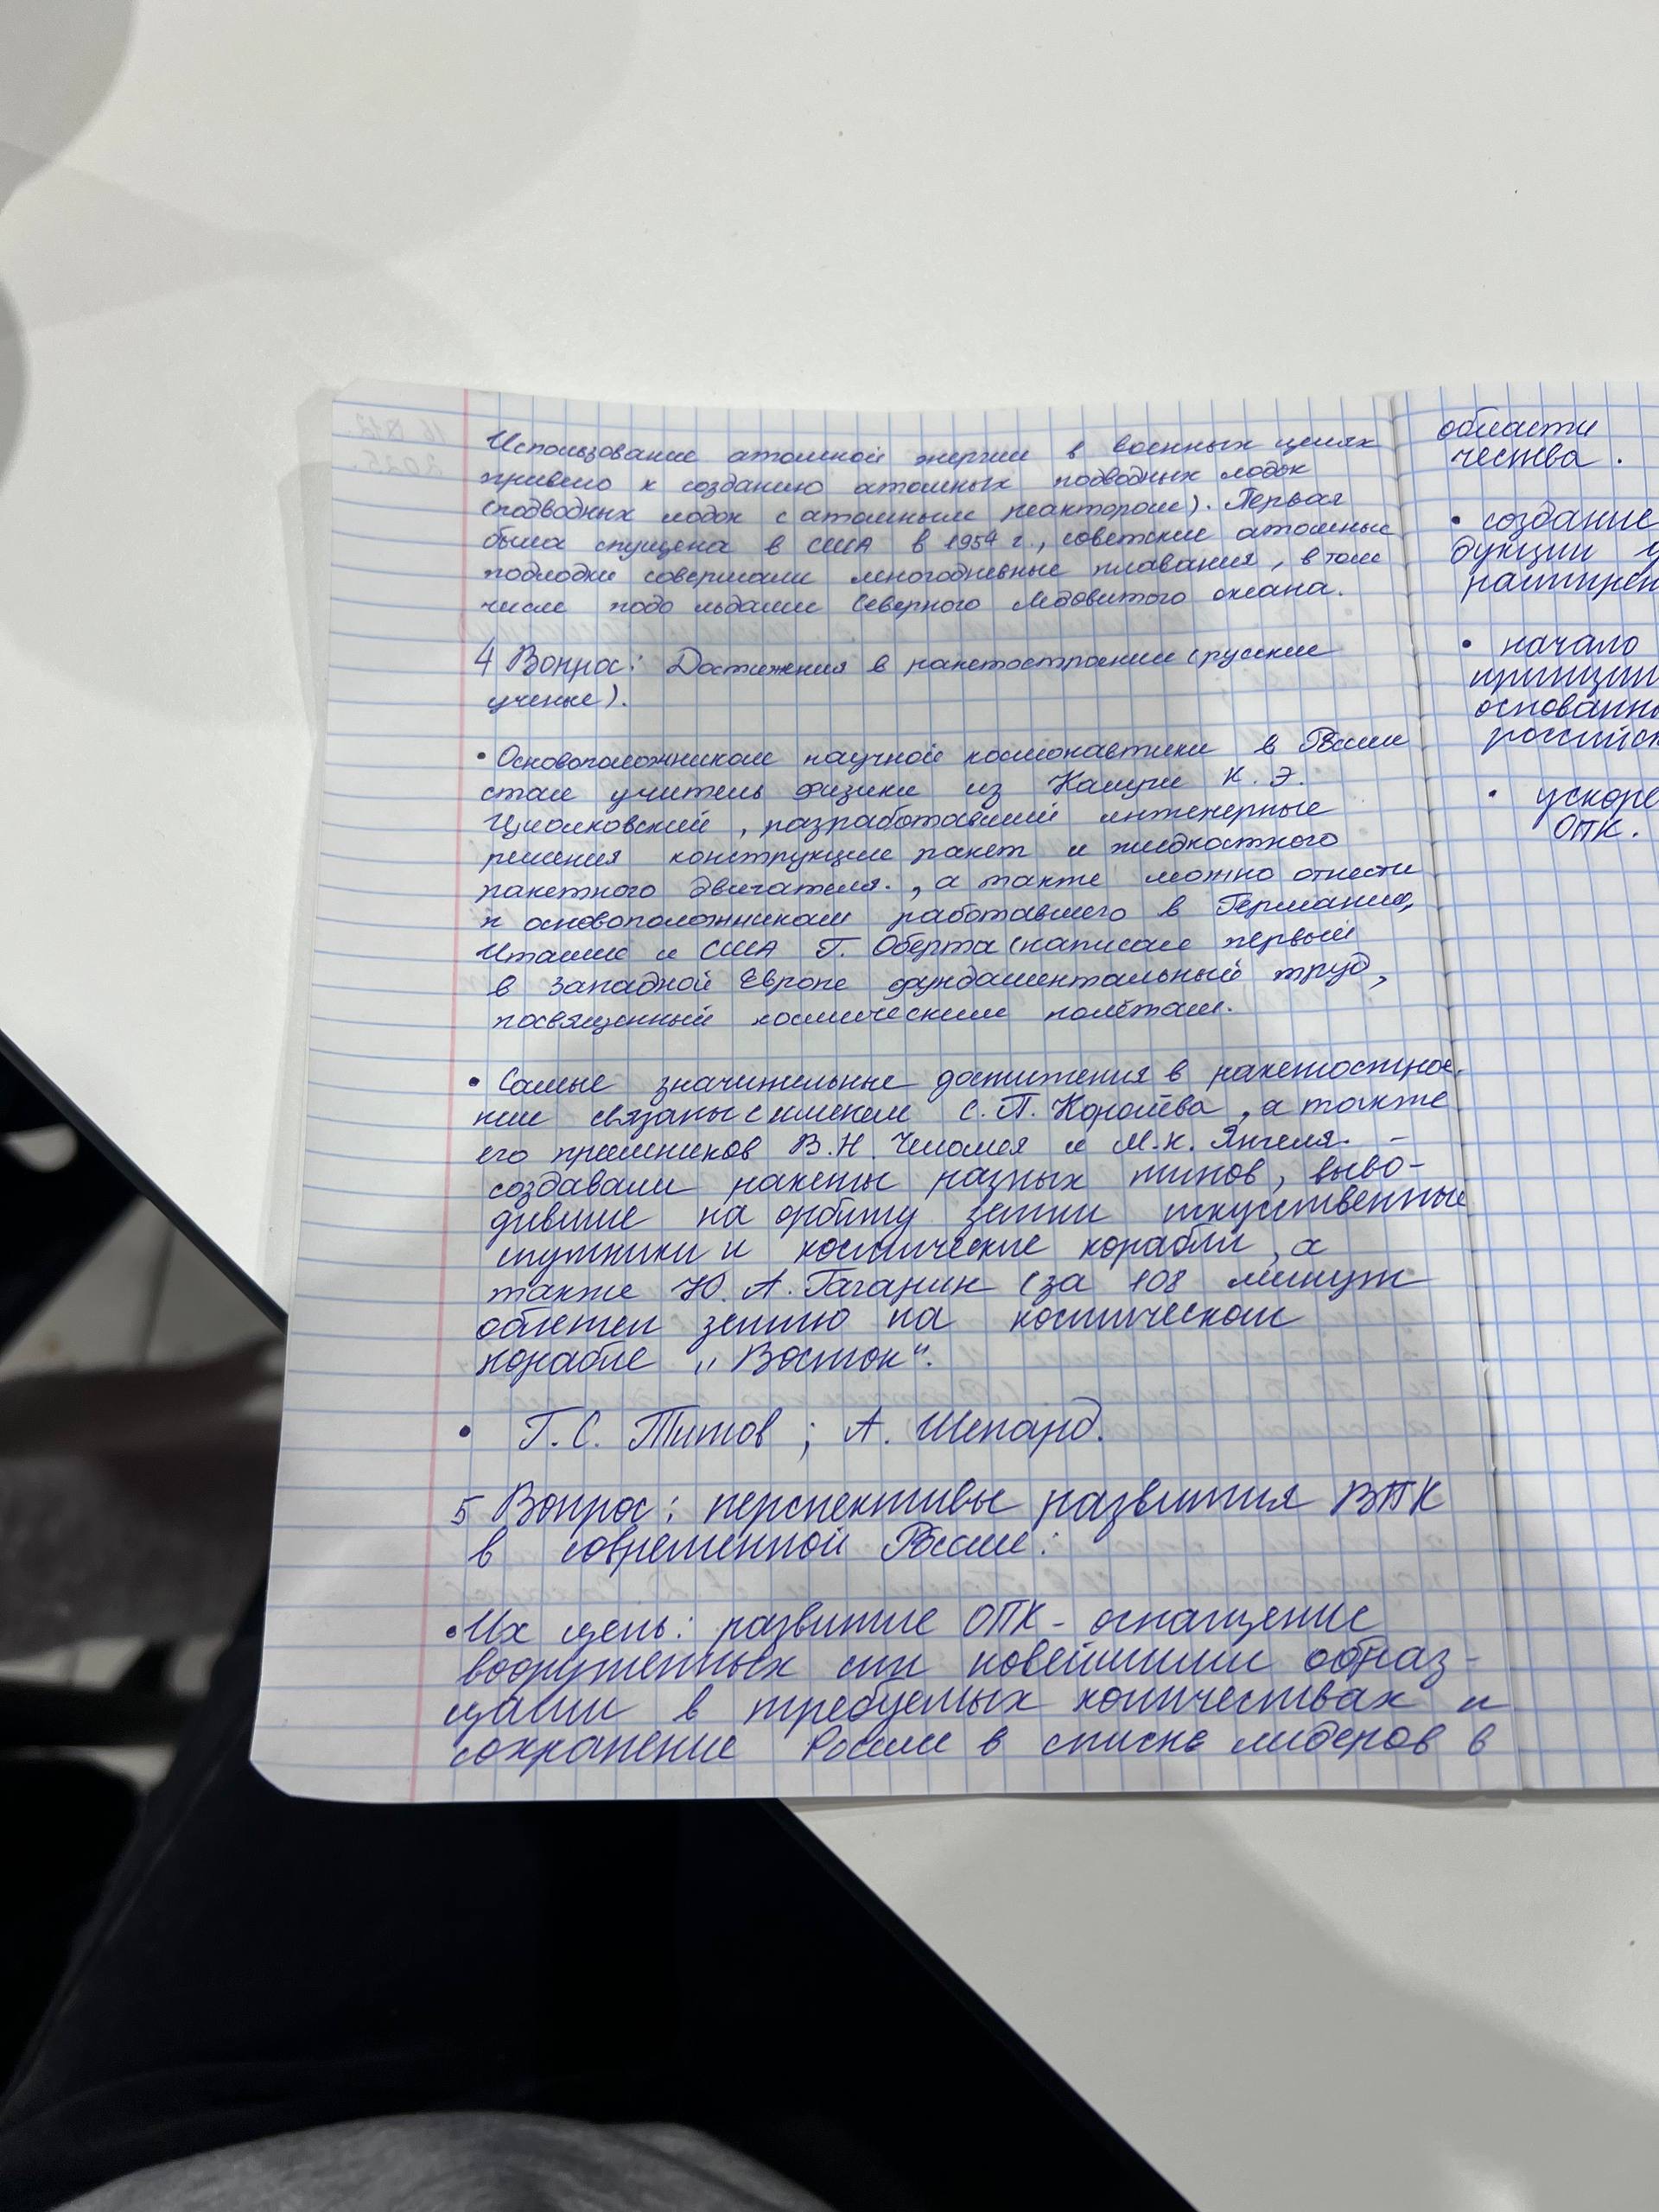 Использование атомной энергии в военных целях
привело к созданию атомных подводных лодок
(подводных лодок с атомным реактором). Первая
была спущена в США в 1954 г., советские атомные
подлодки совершали многодневные плавания, в том
числе подо льдами Северного Ледовитого океана.
4 Вопрос: Достижения в ракетостроении (русские
ученые).
• Основоположником научной космонавтики в России
стал учитель физики из Калуги К. Э.
Циолковский, разработавший инженерные
решения конструкции ракет и жидкостного
ракетного двигателя. , а также можно отнести
к основоположникам работавшего в Германии,
Италии и США Г. Оберта (написал первый
в Западной Европе фундаментальный труд,
посвященный космическим полётам.
• Самые значительные достижения в ракетострое-
нии связаны с именем С. П. Королёва, а также
его приемников В.Н. Челомея и М.К. Янгеля. -
создавали ракеты разных типов, выво-
дившие на орбиту земли искусственные
спутники и космические корабли, а
также Ю. А. Гагарин (за 108 минут
облетел землю на космическом
корабле „Восток".
• Г. С. Титов ; А. Шепард.
5 Вопрос: перспективы развития ВПК
в современной России:
• Их цель: развитие ОПК - оснащение
вооруженных сил новейшими образ-
цами в требуемых количествах и
сохранение России в списке лидеров в
области
чества.
• создание
дукции у
расширен
• начало
принцип
основанн
российск
• ускоре
ОПК.